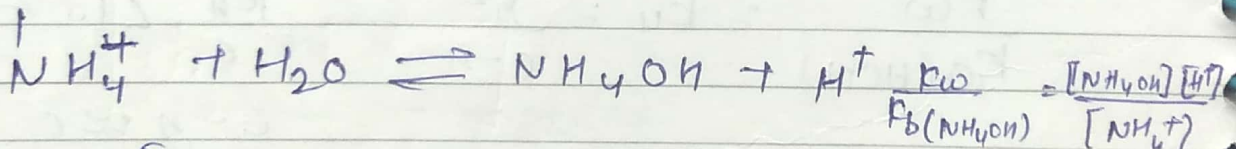 NH₄⁺ + H₂O ⇌ NH₄OH + H⁺ Kw/Kb(NH₄OH) = [NH₄OH][H⁺]/[NH₄⁺]